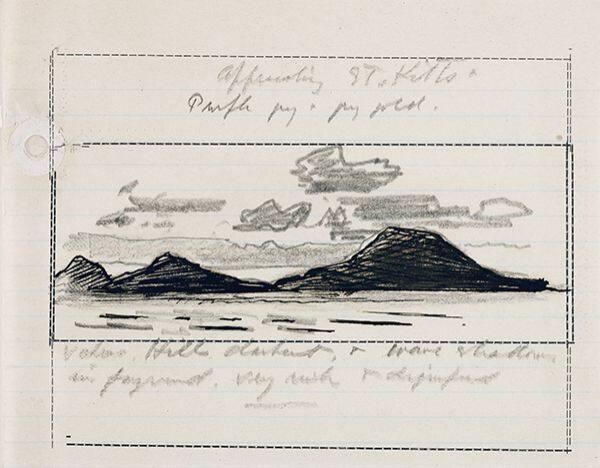 Approaching St. Kitts
Purple grey & grey gold.
Hill darkest, & wave shadows
in foreground, very rich &